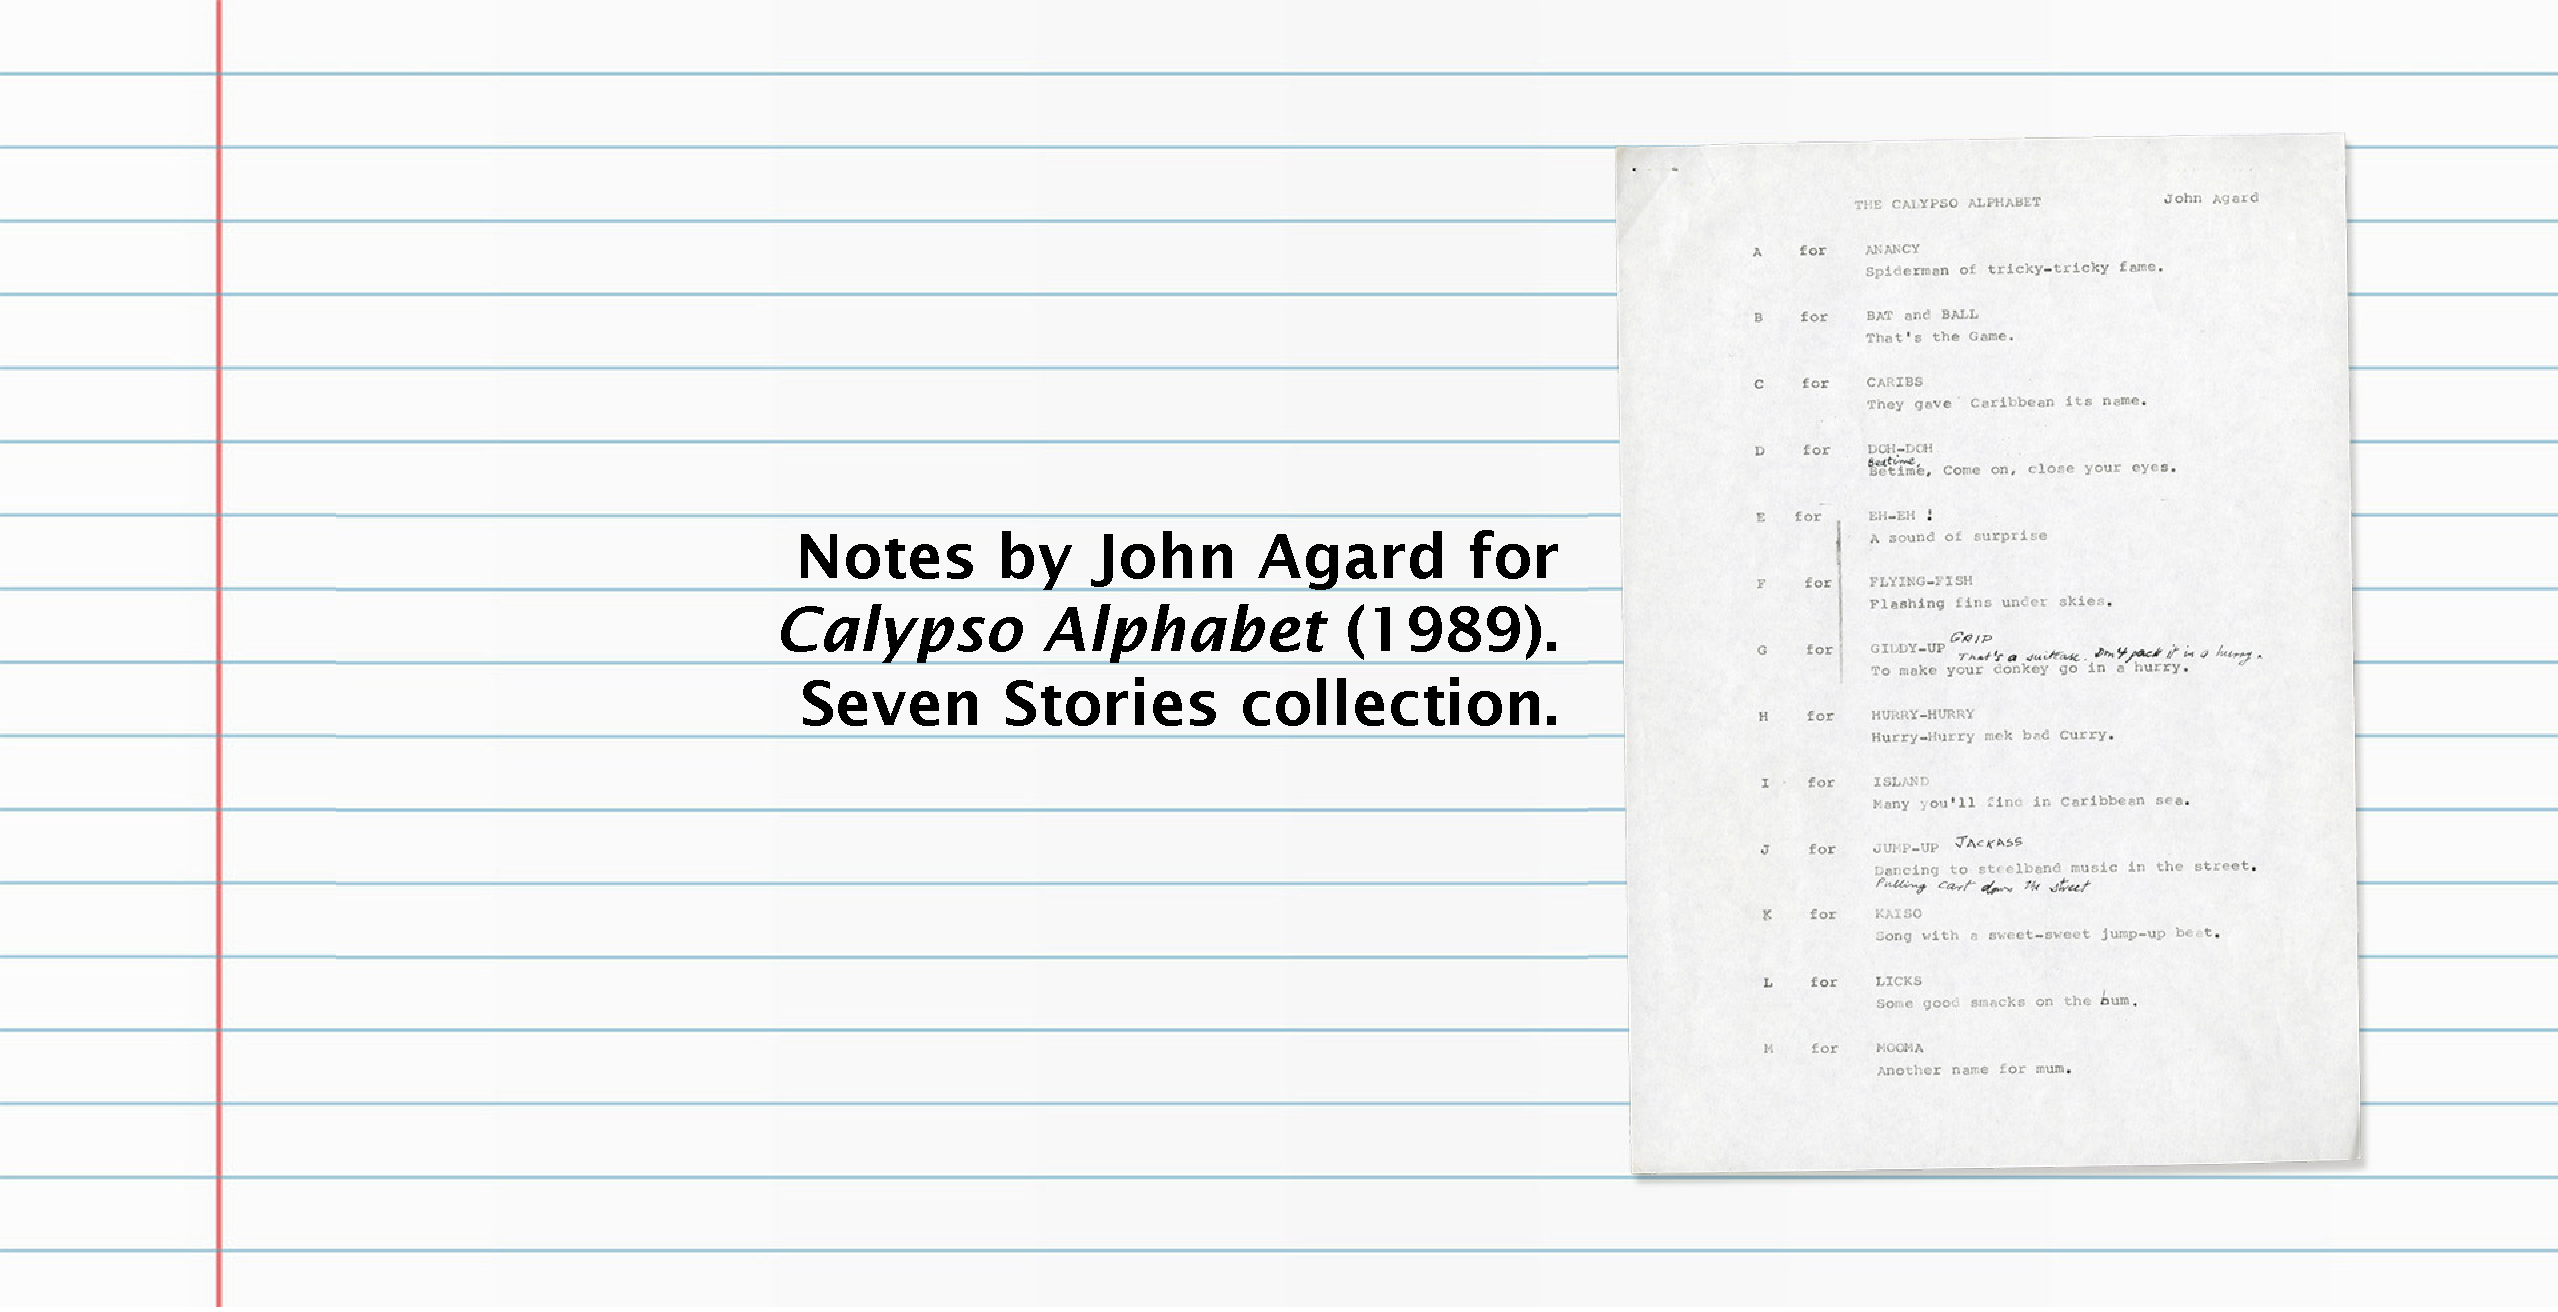 Notes by John Agard for
Calypso Alphabet (1989).
Seven Stories collection.
THE CALYPSO ALPHABET John Agard
A for ANANCY
Spiderman of tricky-tricky fame.
B for BAT and BALL
That's the Game.
C for CARIBS
They gave Caribbean its name.
D for DOH-DOH
Bedtime,
Betime, Come on, close your eyes.
E for EH-EH !
A sound of surprise
F for FLYING-FISH
Flashing fins under skies.
G for GIDDY-UP GRIP
That's a suitcase. Don't pack it in a hurry.
To make your donkey go in a hurry.
H for HURRY-HURRY
Hurry-Hurry mek bad Curry.
I for ISLAND
Many you'll find in Caribbean sea.
J for JUMP-UP JACKASS
Dancing to steelband music in the street.
Pulling cart down the street
K for KAISO
Song with a sweet-sweet jump-up beat.
L for LICKS
Some good smacks on the bum.
M for MOOMA
Another name for mum.